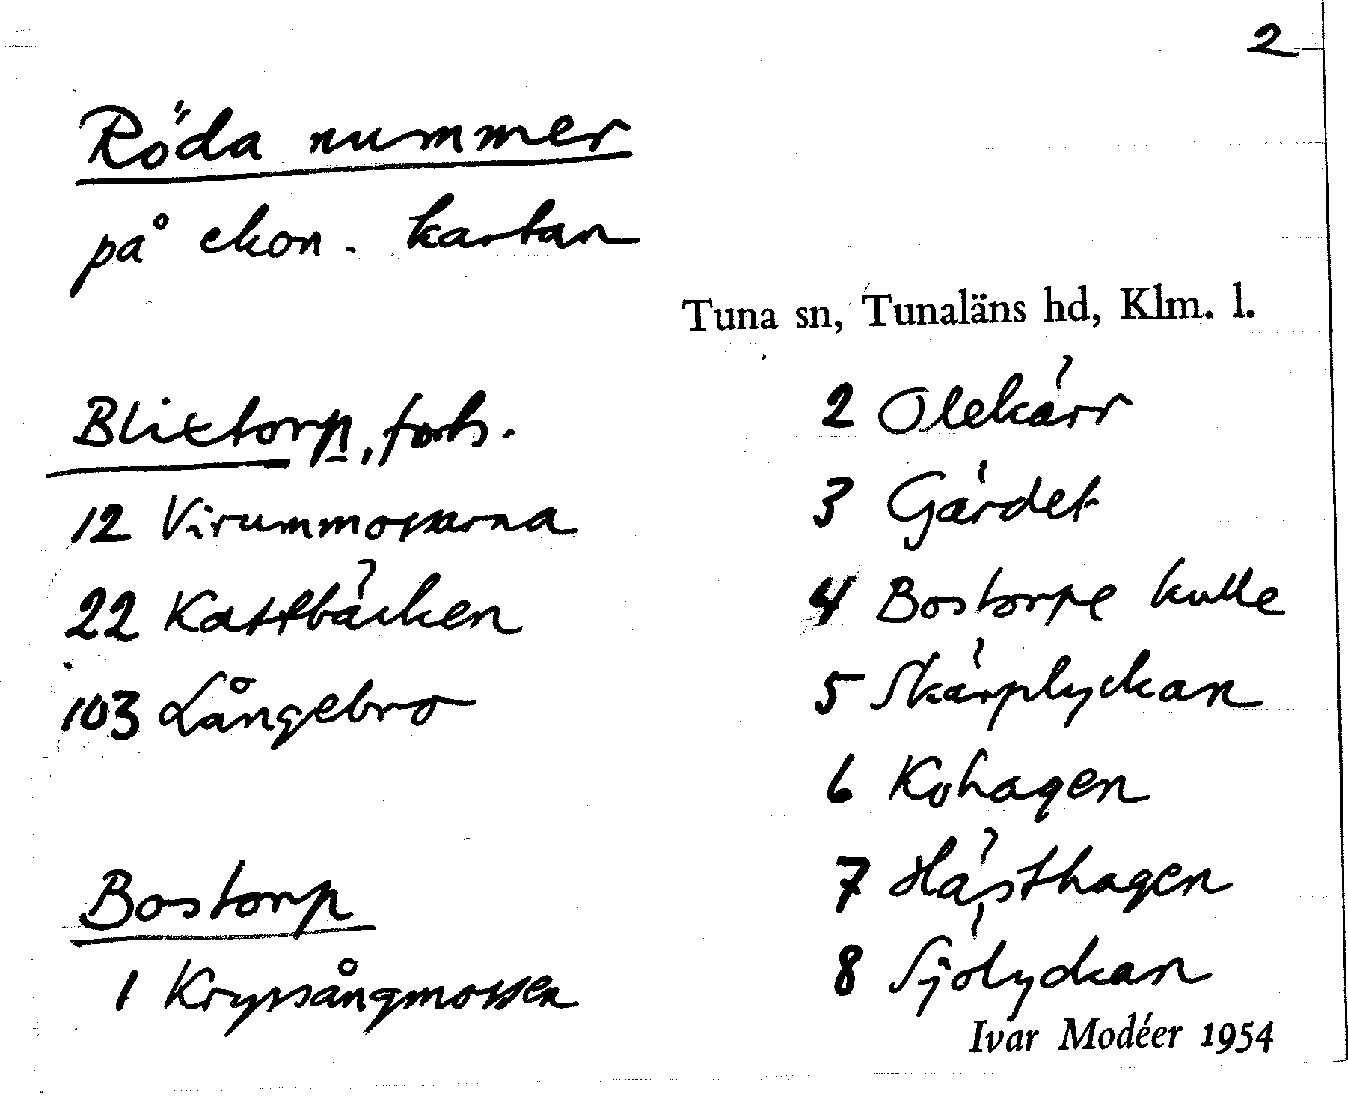 2
Röda nummer
på ekon. kartan
Tuna sn, Tunaläns hd, Klm. l.
Blixtorp, forts.
12 Virummossarna
22 Kattbäcken
103 Långebro
Bostorp
1 Kryssångmossen
2 Olekärr
3 Gärdet
4 Bostorpe kulle
5 Skärplyckan
6 Kohagen
7 Hästhagen
8 Sjölyckan
Ivar Modéer 1954